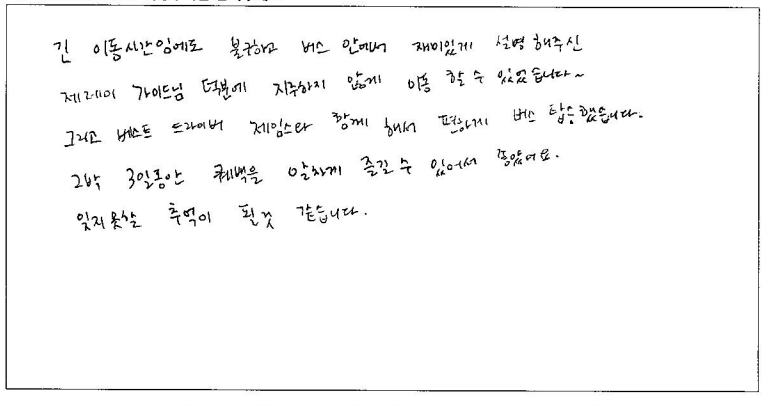 긴 이동시간임에도 불구하고 버스 안에서 재미있게 설명해주신
제레미 가이드님 덕분에 지루하지 않게 이동 할 수 있었습니다~
그리고 베스트 드라이버 제임스와 함께 해서 편하게 버스 탑승했습니다.
2박 3일동안 퀘백을 알차게 즐길 수 있어서 좋았어요.
잊지못할 추억이 될것 같습니다.